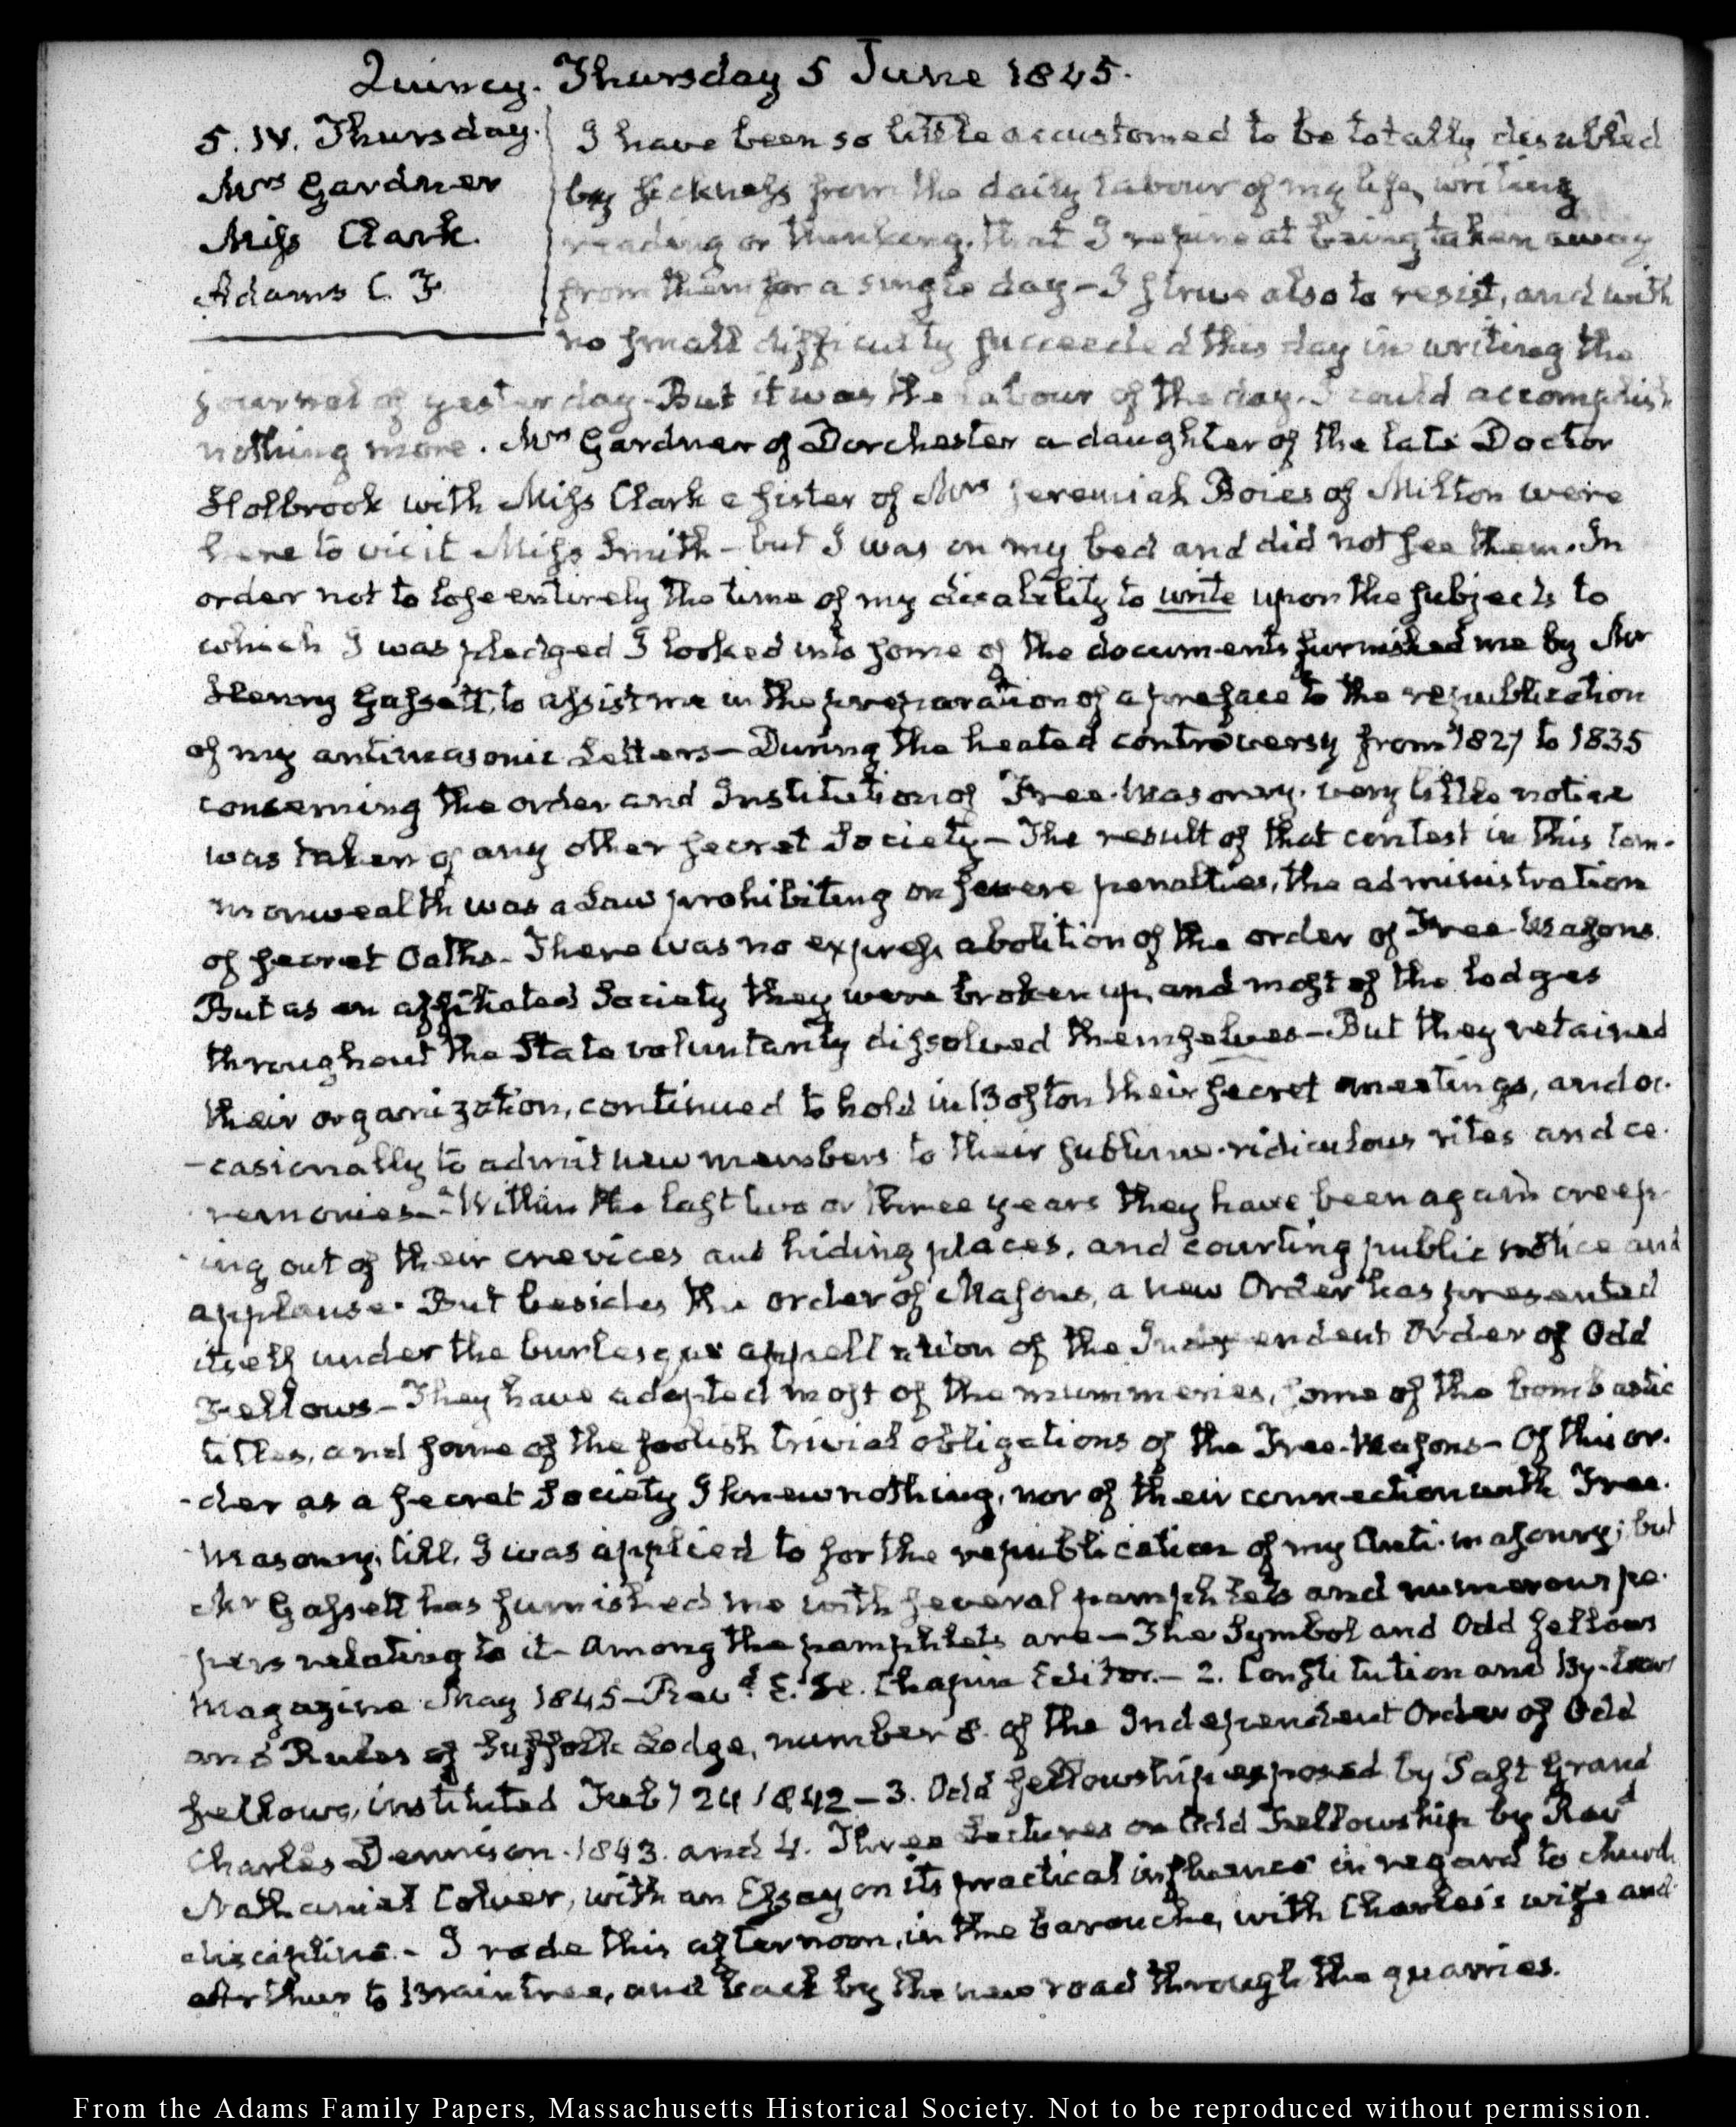 Quincy. Thursday 5 June 1845.
5. IV. Thursday.
Mrs Gardner
Miss Clark.
Adams C. F.
I have been so little accustomed to be totally disabled
by sickness from the daily labour of my life, writing
reading or thinking, that I repine at being taken away
from them for a single day - I strive also to resist, and with
no small difficulty succeeded this day in writing the
journal of yesterday - But it was the labour of the day. I could accomplish
nothing more. Mrs Gardner of Dorchester a daughter of the late Doctor
Holbrook with Miss Clark a sister of Mrs Jeremiah Boies of Milton were
here to visit Miss Smith - but I was on my bed and did not see them. In
order not to lose entirely the time of my disability to write upon the subjects to
which I was pledged I looked into some of the documents furnished me by Mr
Henry Gassett, to assist me in the preparation of a preface to the republication
of my antimasonic Letters - During the heated controversy from 1827 to 1835
concerning the order and Institution of Free-Masonry. very little notice
was taken of any other secret Society - The result of that contest in this Com-
monwealth was a Law prohibiting on severe penalties, the administration
of secret Oaths - There was no express abolition of the order of Free-Masons.
But as an affiliated Society they were broken up, and most of the lodges
throughout the State voluntarily dissolved themselves - But they retained
their organization, continued to hold in Boston their secret meetings, and oc-
-casionally to admit new members to their sublime-ridiculous rites and ce-
remonies - Within the last two or three years they have been again creep-
ing out of their crevices and hiding places, and courting public notice and
applause. But besides the order of Masons, a new Order has presented
itself under the burlesque appellation of the Independent Order of Odd
Fellows - They have adopted most of the mummeries, some of the bombastic
titles, and some of the foolish trivial obligations of the Free-Masons - Of this or-
-der as a secret Society I knew nothing, nor of their connection with Free-
-Masonry, till, I was applied to for the republication of my Anti-masonry; but
Mr Gassett has furnished me with several pamphlets and numerous pa-
pers relating to it - Among the pamphlets are - The Symbol and Odd fellows
Magazine May 1845 - Revd. E. H. Chapin Editor. - 2. Constitution and By-Laws
and Rules of Suffolk Lodge, number 8. of the Independent Order of Odd
fellows, instituted Feby 24 1842 - 3. Odd fellowship exposed by Past Grand
Charles Dennison. 1843. and 4. Three Lectures on Odd Fellowship by Revd
Nathaniel Colver, with an Essay on its practical influence in regard to church
discipline. - I rode this afternoon, in the barouche, with Charles's wife and
Arthur to Braintree, and back by the new road through the quarries.
From the Adams Family Papers, Massachusetts Historical Society. Not to be reproduced without permission.